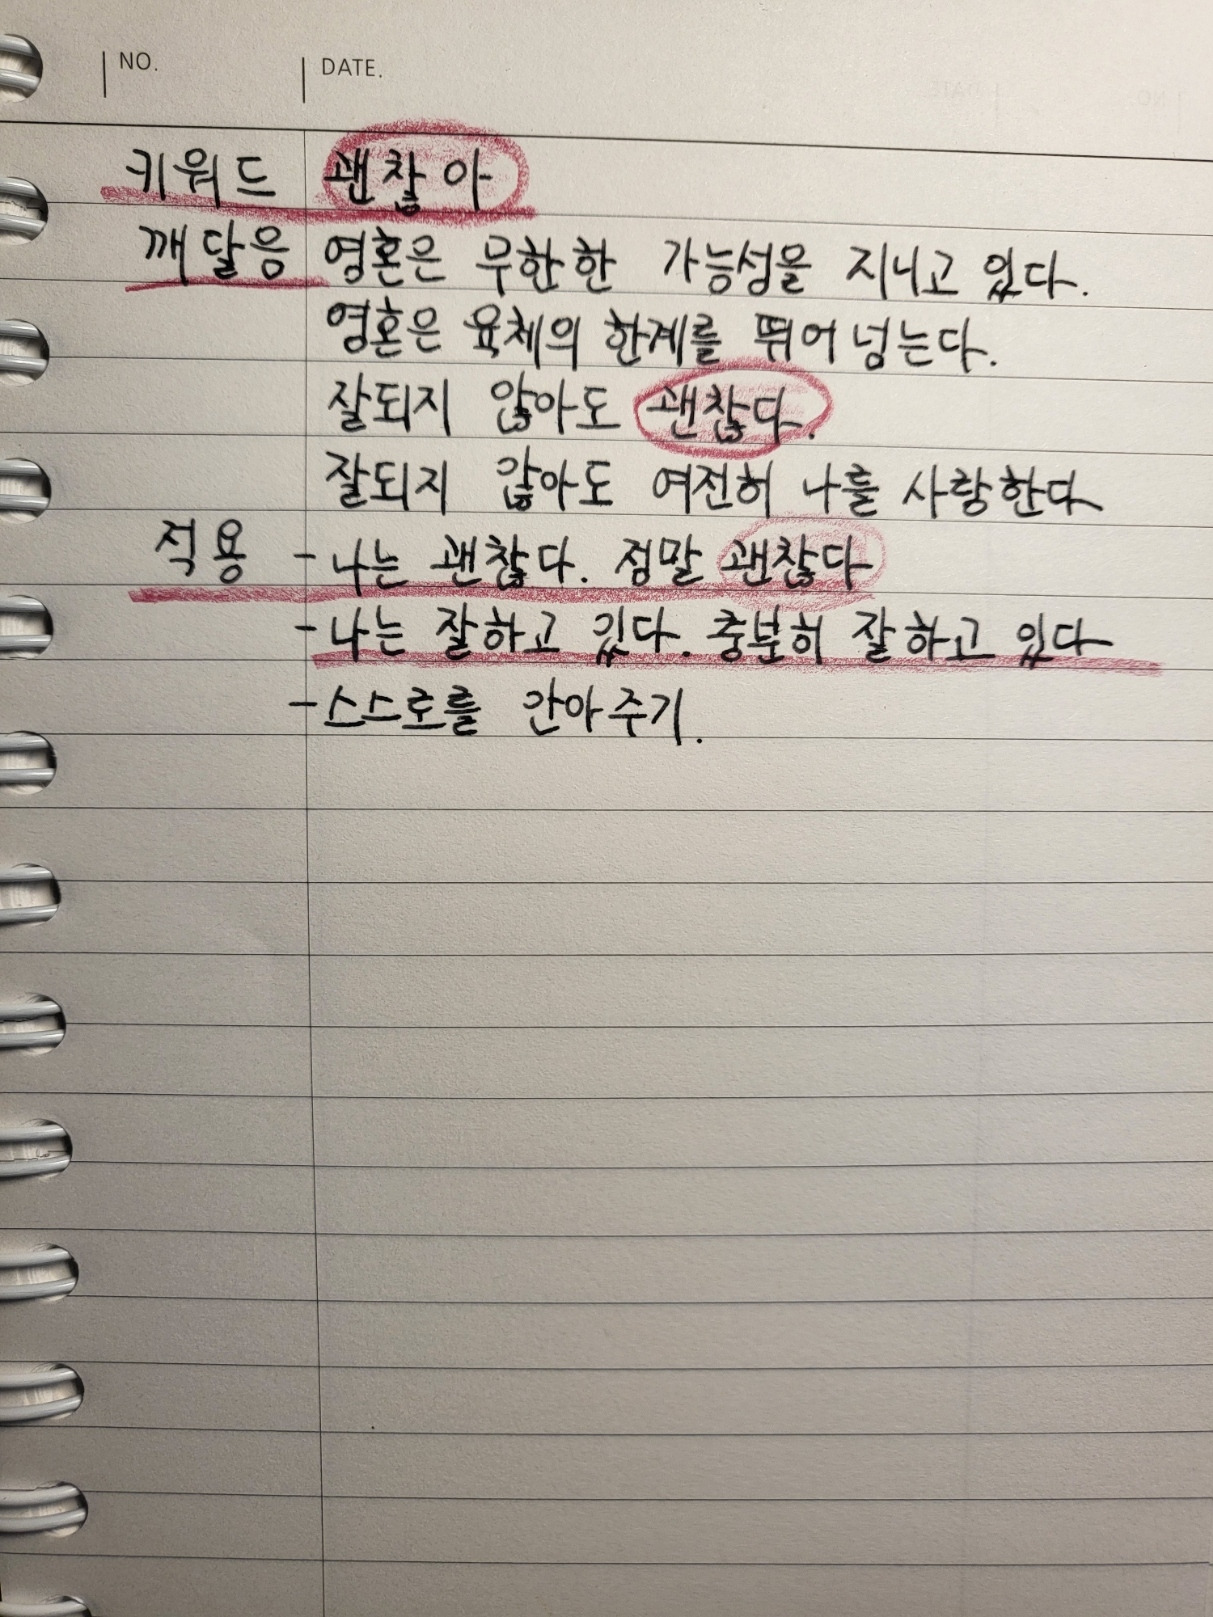 NO. DATE.
키워드 괜찮아
깨달음 영혼은 무한한 가능성을 지니고 있다.
영혼은 육체의 한계를 뛰어 넘는다.
잘되지 않아도 괜찮다.
잘되지 않아도 여전히 나를 사랑한다
적용 - 나는 괜찮다. 정말 괜찮다
- 나는 잘하고 있다. 충분히 잘하고 있다
- 스스로를 안아주기.